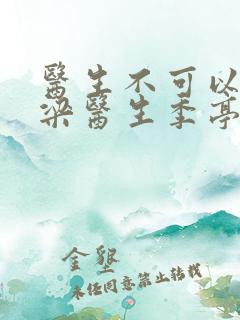 醫生不可以
梁醫生季亭
金墾
未經同意禁止轉載